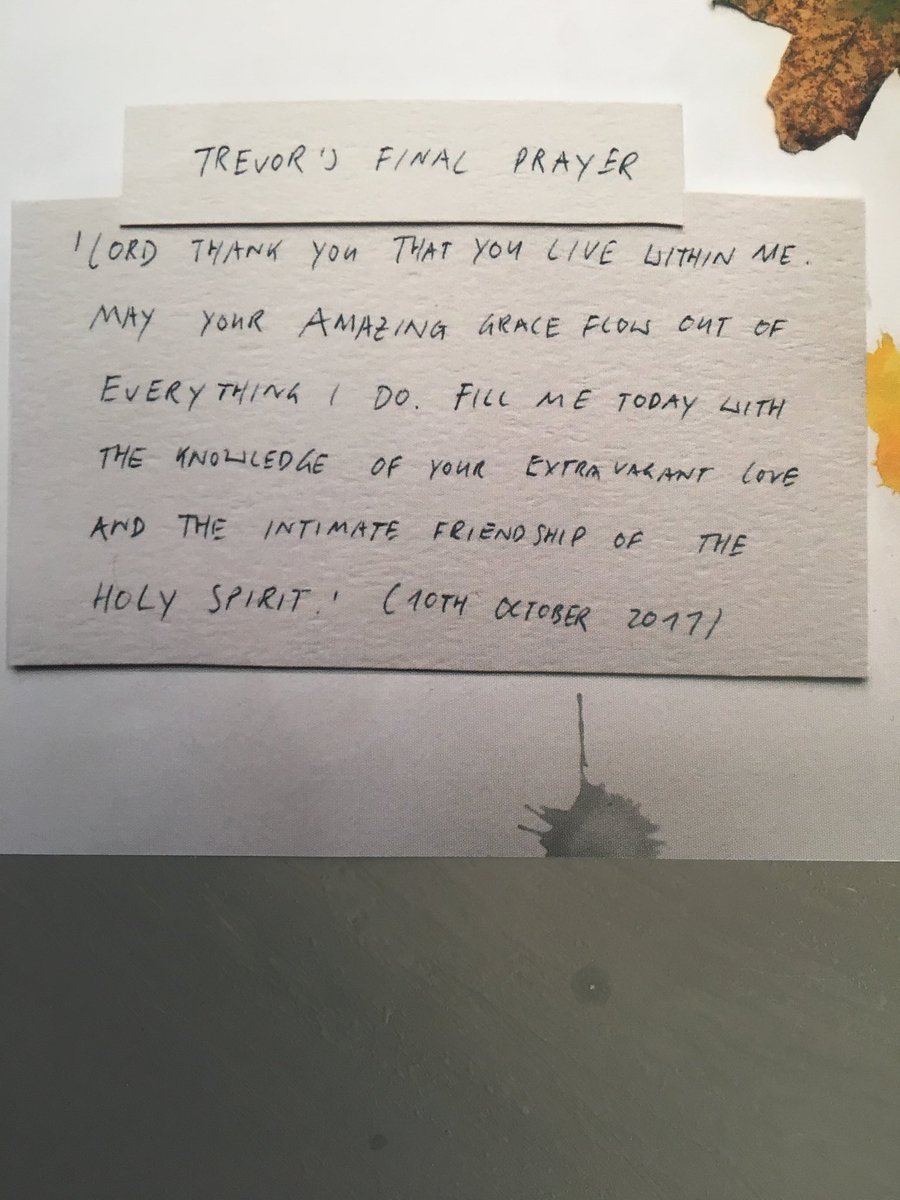 TREVOR'S FINAL PRAYER
'LORD THANK YOU THAT YOU LIVE WITHIN ME.
MAY YOUR AMAZING GRACE FLOW OUT OF
EVERYTHING I DO. FILL ME TODAY WITH
THE KNOWLEDGE OF YOUR EXTRAVAGANT LOVE
AND THE INTIMATE FRIENDSHIP OF THE
HOLY SPIRIT.' (10TH OCTOBER 2017)